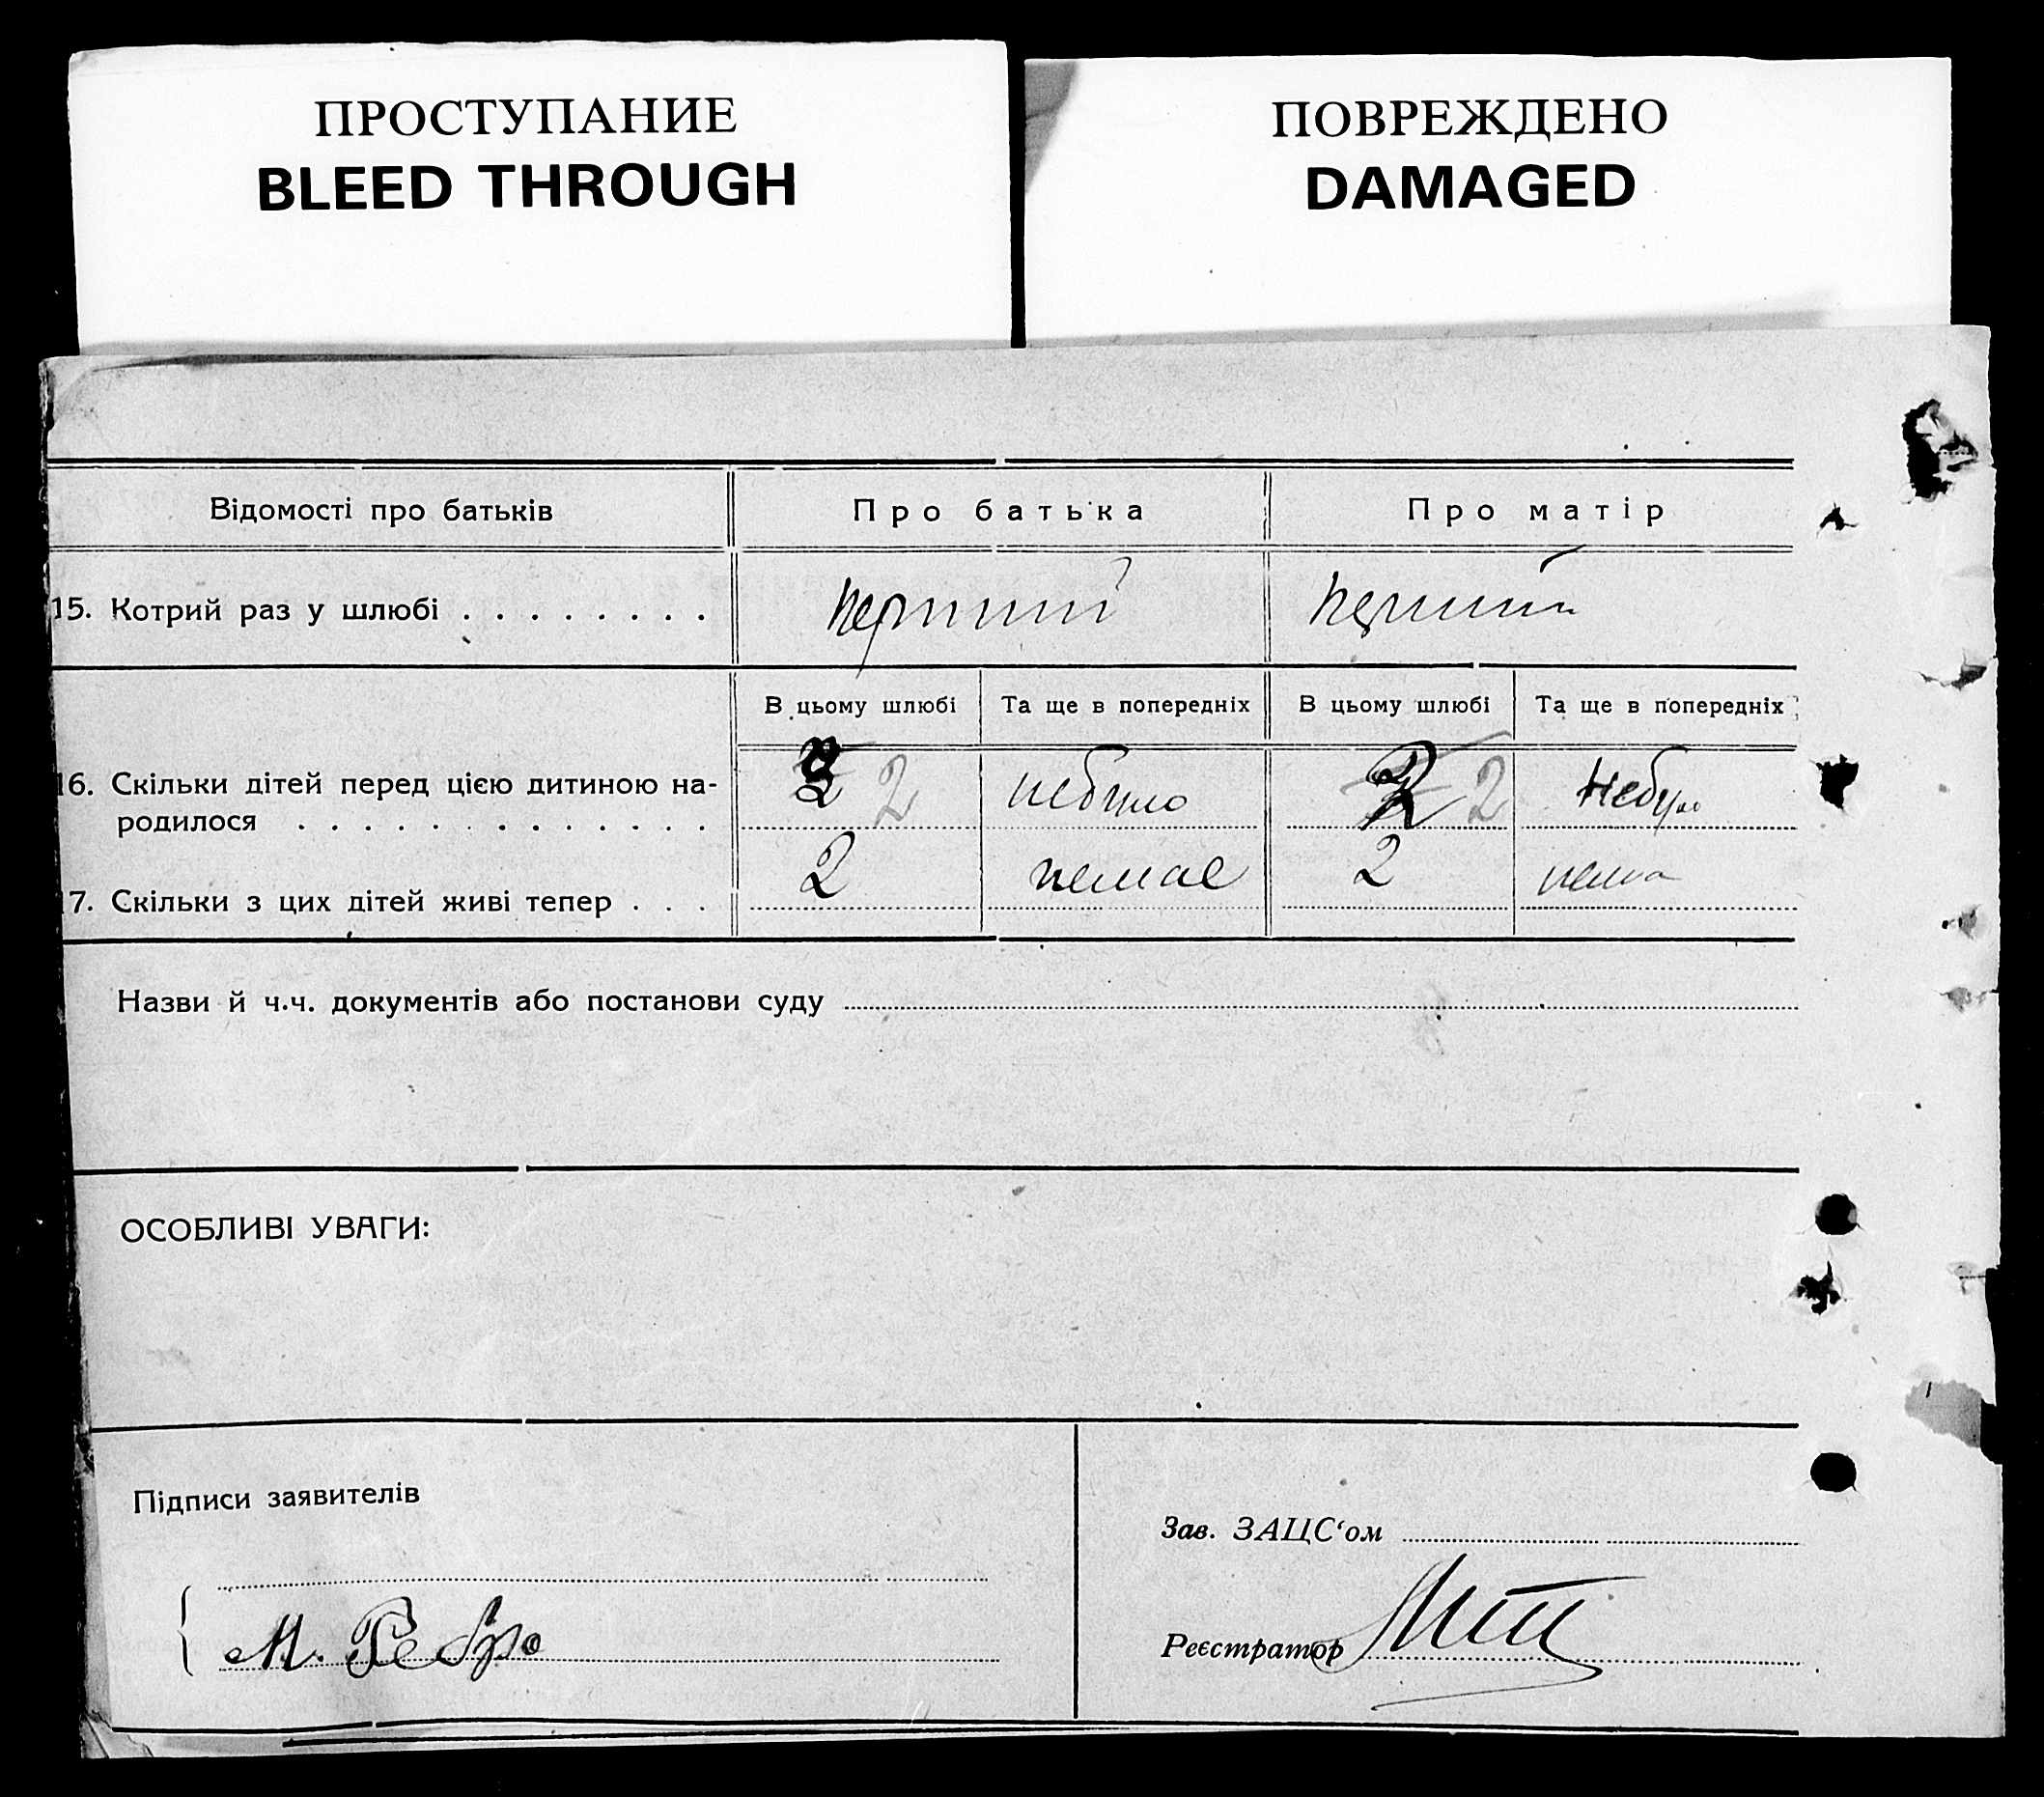 ПРОСТУПАНИЕ
BLEED THROUGH
ПОВРЕЖДЕНО
DAMAGED
Відомості про батьків
Про батька
Про матір
15. Котрий раз у шлюбі . . . . . . . .
перший
перший
В цьому шлюбі
Та ще в попередніх
В цьому шлюбі
Та ще в попередніх
16. Скільки дітей перед цією дитиною на-
родилося . . . . . . . . . . . . .
2
небуло
2
Небуло
17. Скільки з цих дітей живі тепер . . .
2
немає
2
нема
Назви й ч.ч. документів або постанови суду
ОСОБЛИВІ УВАГИ:
Підписи заявителів
М. Ребро
Зав. ЗАЦС‘ом
Реєстратор